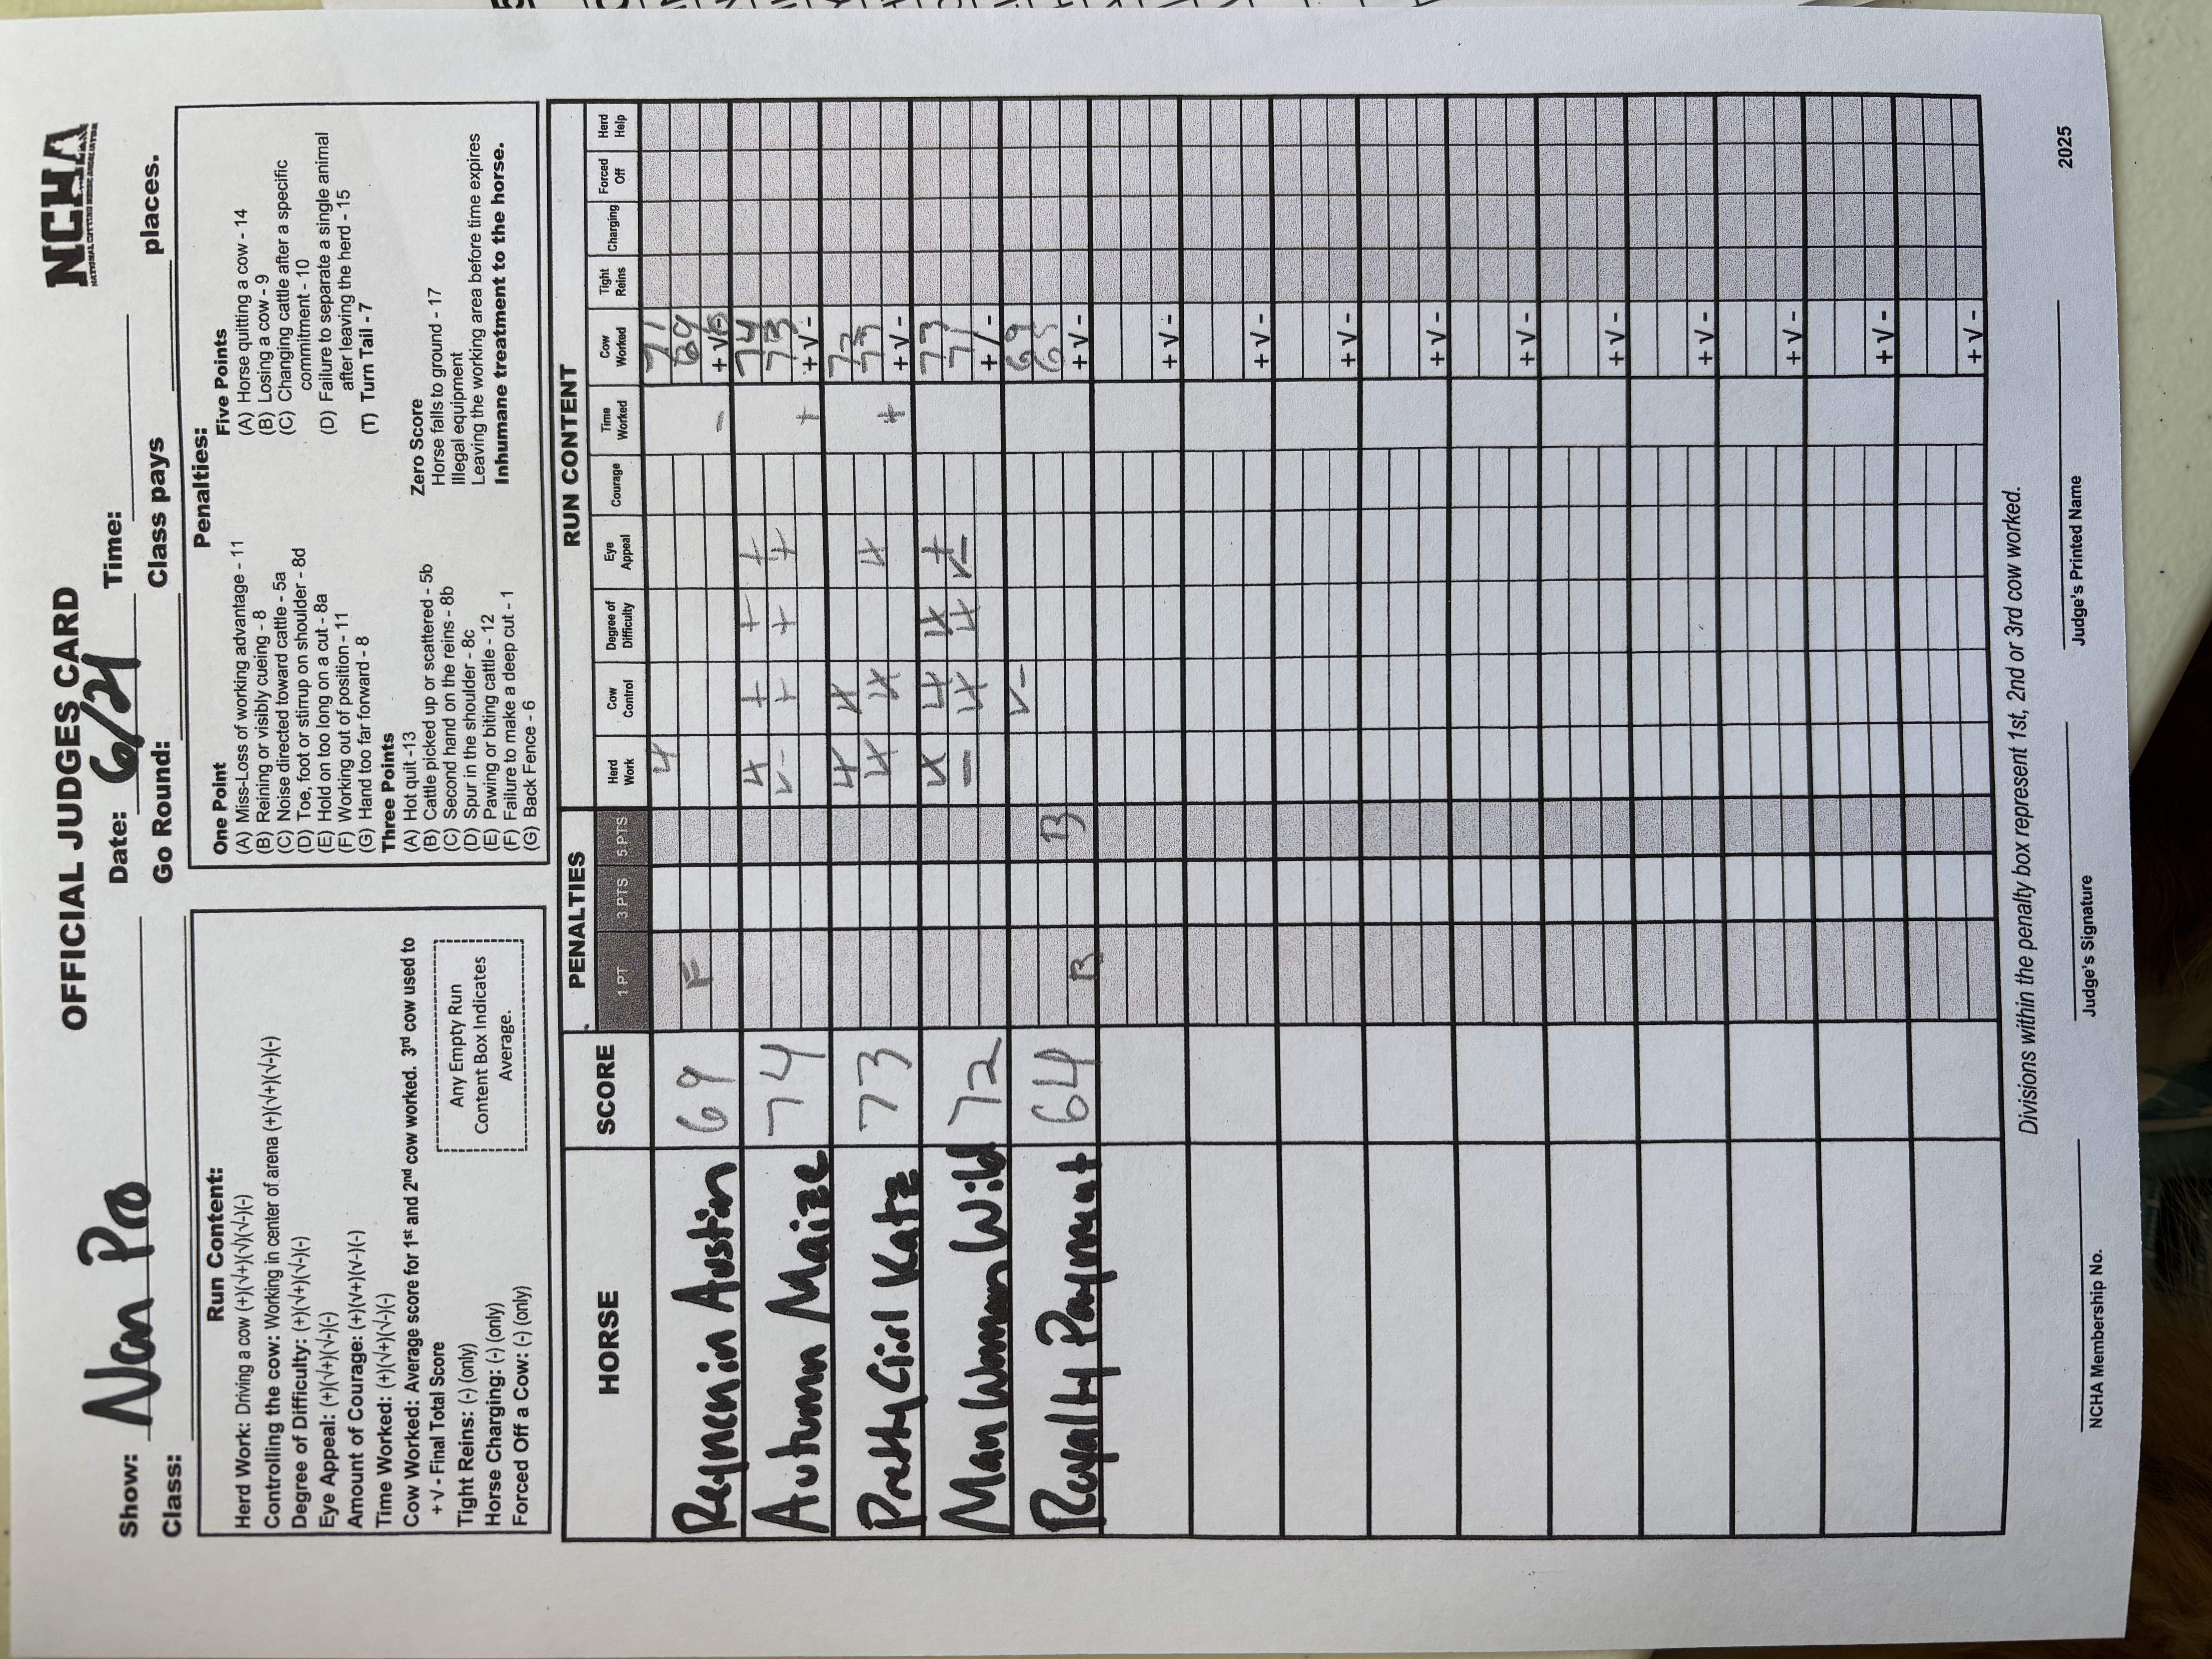 OFFICIAL JUDGES CARD
NCHA
NATIONAL CUTTING HORSE ASSOCIATION
Show: Non Pro
Date: 6/21 Time:
Class:
Go Round: Class pays places.
Run Content:
Herd Work: Driving a cow (+)(√+)(√)(√-)(-)
Controlling the cow: Working in center of arena (+)(√+)(√-)(-)
Degree of Difficulty: (+)(√+)(√-)(-)
Eye Appeal: (+)(√+)(√-)(-)
Amount of Courage: (+)(√+)(√-)(-)
Time Worked: (+)(√+)(√-)(-)
Cow Worked: Average score for 1st and 2nd cow worked. 3rd cow used to
+ √ - Final Total Score
Tight Reins: (-) (only)
Horse Charging: (-) (only)
Forced Off a Cow: (-) (only)
Any Empty Run
Content Box Indicates
Average.
Penalties:
One Point
(A) Miss-Loss of working advantage - 11
(B) Reining or visibly cueing - 8
(C) Noise directed toward cattle - 5a
(D) Toe, foot or stirrup on shoulder - 8d
(E) Hold on too long on a cut - 8a
(F) Working out of position - 11
(G) Hand too far forward - 8
Three Points
(A) Hot quit -13
(B) Cattle picked up or scattered - 5b
(C) Second hand on the reins - 8b
(D) Spur in the shoulder - 8c
(E) Pawing or biting cattle - 12
(F) Failure to make a deep cut - 1
(G) Back Fence - 6
Five Points
(A) Horse quitting a cow - 14
(B) Losing a cow - 9
(C) Changing cattle after a specific
commitment - 10
(D) Failure to separate a single animal
after leaving the herd - 15
(T) Turn Tail - 7
Zero Score
Horse falls to ground - 17
Illegal equipment
Leaving the working area before time expires
Inhumane treatment to the horse.
HORSE SCORE PENALTIES RUN CONTENT
1 PT 3 PTS 5 PTS Herd Work Cow Control Degree of Difficulty Eye Appeal Courage Time Worked Cow Worked Tight Reins Charging Forced Off Herd Help
71
F 69
Reyncnin Austin 69 - + √ -
√+ + + + 74
√- + + + 73
Autumn Maize 74 + + √ -
√+ √+
√+ √+ √+
Pretty Girl Katz 73 + + √ -
√+ √+ √+
- √+ √+ √- 71
Man Woman Wild 72
√- 69
B
Royalty Payment 64 B + √ -
+ √ -
+ √ -
+ √ -
+ √ -
+ √ -
+ √ -
+ √ -
+ √ -
+ √ -
+ √ -
Divisions within the penalty box represent 1st, 2nd or 3rd cow worked.
NCHA Membership No. Judge's Signature Judge's Printed Name 2025